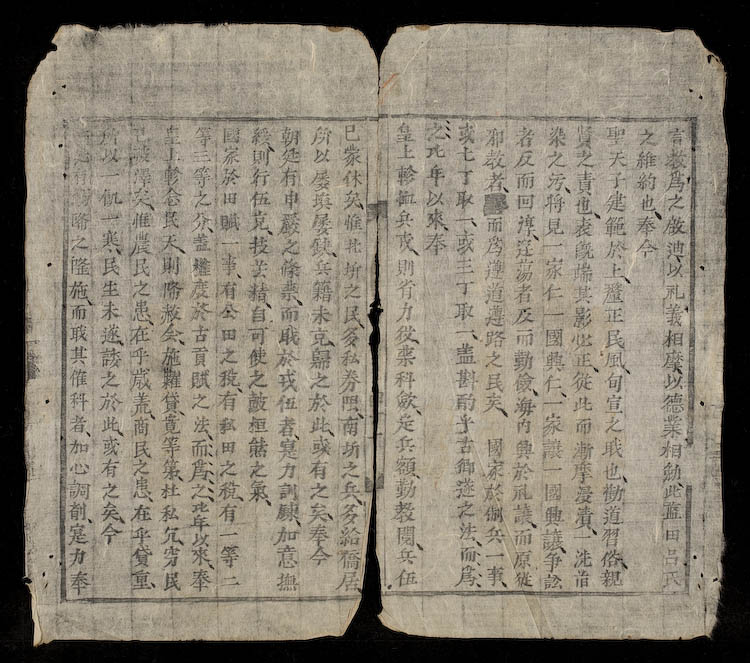 言教爲之啟迪以礼義相摩以德業相勉此藍田吕氏
之維約也奉今
聖天子建範於上釐正民風旬宣之職也勸道習俗親
賢之責也表既端其影必正從此而漸摩漫漬一洗旧
染之污將見一家仁一國興仁一家讓一國興讓争訟
者反而回淳逰蕩者反而勤儉海内興於礼讓而原從
邪教者而爲遵道遵路之民矣國家於制兵一事
或七丁取一或三丁取一盖斟酌乎古鄉遂之法而爲
之比年以來奉
皇上軫恤兵戎則省力役槩科歛定兵額勤教閱兵伍
已蒙休矣惟北圻之民多私券隈南圻之兵多給僑居
所以屡填屡缺兵籍未克歸之於此或有之矣奉今
朝廷有申嚴之條禁而職於戎伍者寔力訓練加意撫
綏則行伍克技芸精自可使之敵桓熊之氣
國家於田賦一事有公田之稅有私田之稅有一等二
等三等之分盖權度於古貢賦之法而爲之比年以來奉
皇上軫念民天則降赦条施糶貸寬等第杜私冗穷民
已被澤矣惟農民之患在乎歲荒商民之患在乎貸重
所以一飢一寒民生未遂諉之於此或有之矣今
之隆施而職其催科者加心調劑寔力奉